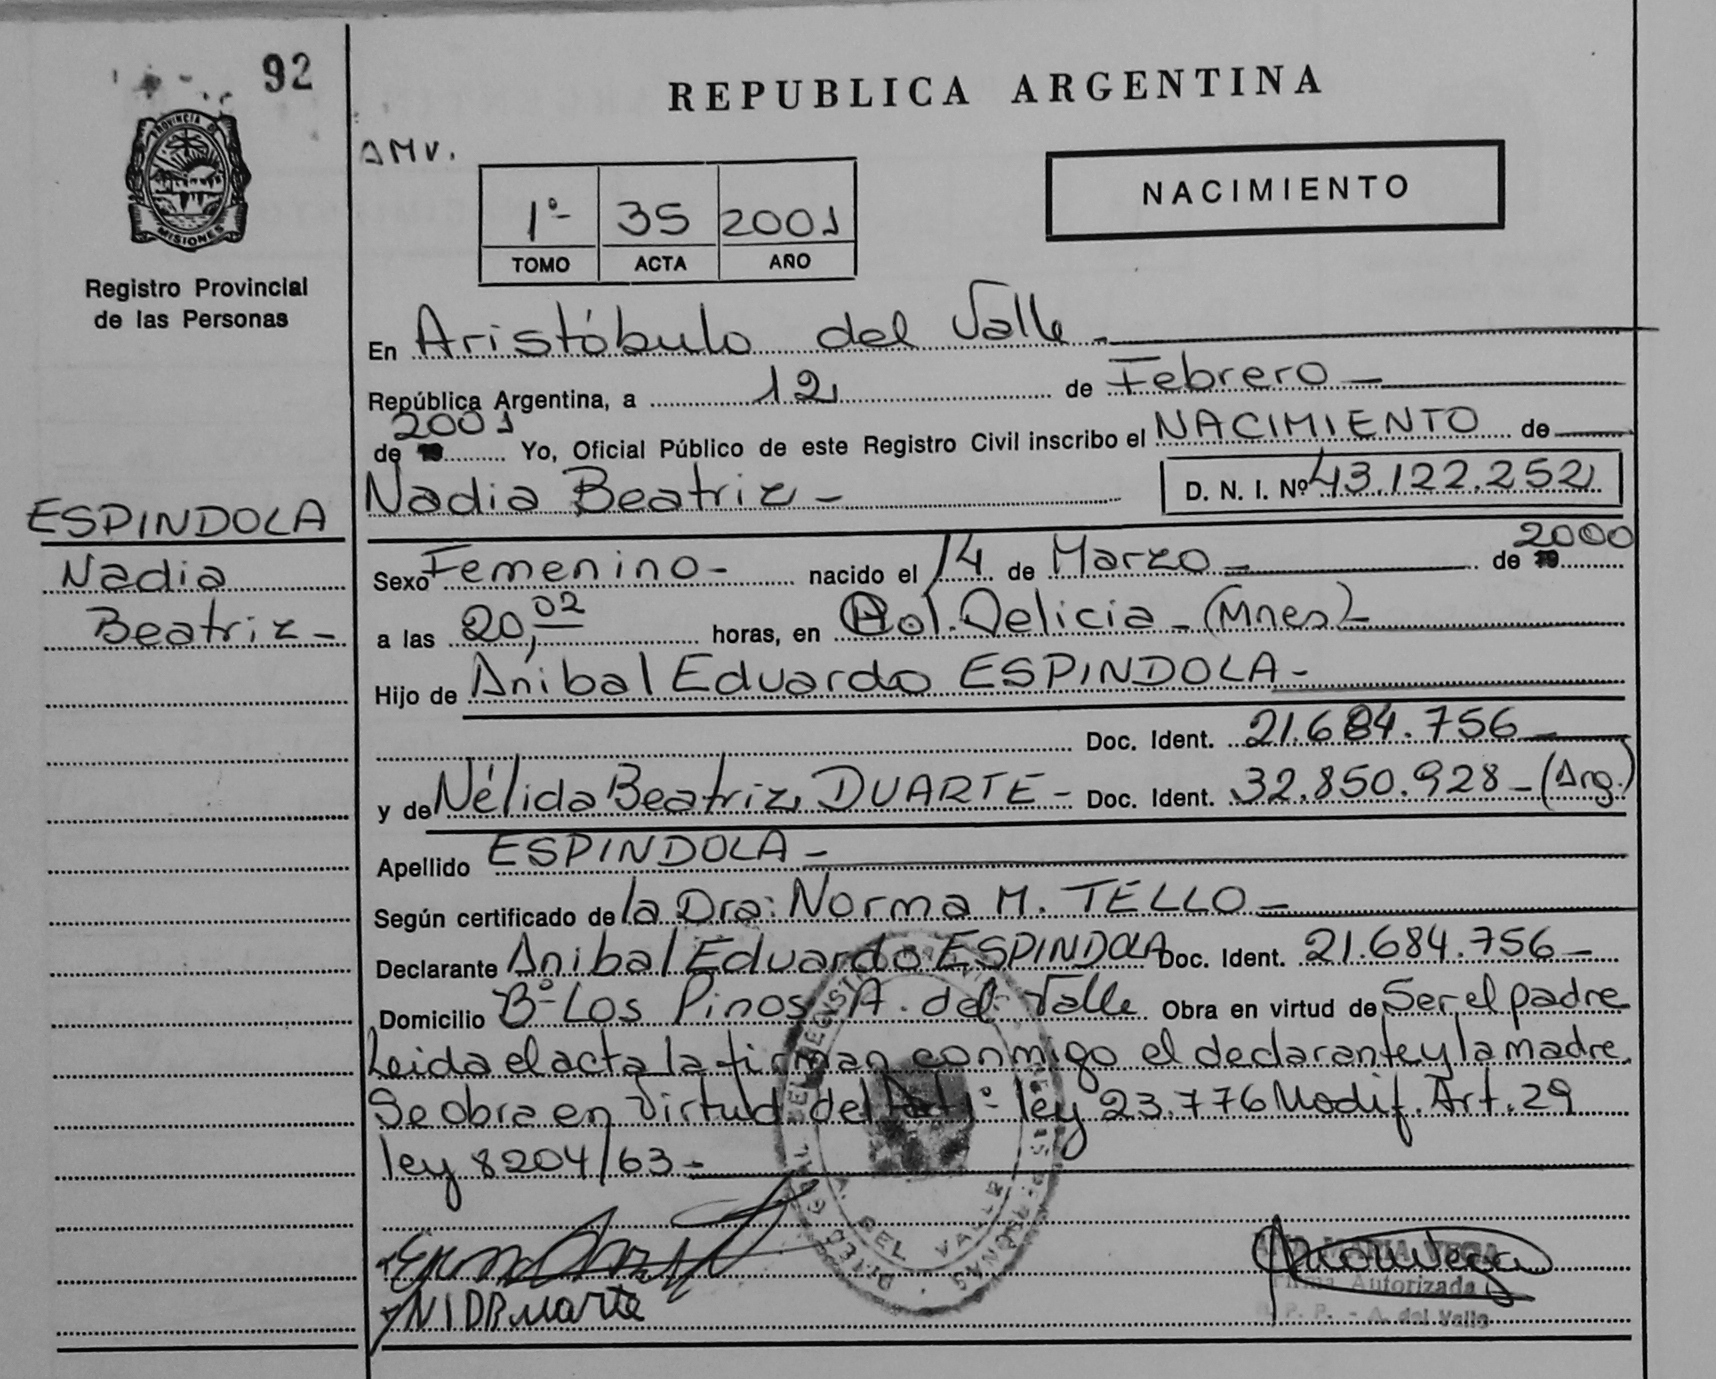 92
PROVINCIA D
MISIONES
Registro Provincial
de las Personas
ESPINDOLA
Nadia
Beatriz -
REPUBLICA ARGENTINA
AMV.
NACIMIENTO
1º- 35 2001
TOMO ACTA AÑO
En Aristóbulo del Valle -
República Argentina, a 12 de Febrero -
2001
de 19 Yo, Oficial Público de este Registro Civil inscribo el NACIMIENTO de
Nadia Beatriz - D. N. I. Nº 43.122.252
Sexo Femenino - nacido el 14 de Marzo - de 19 2000
a las 20,02 horas, en Col. Delicia - (Mnes)-
Hijo de Anibal Eduardo ESPINDOLA -
Doc. Ident. 21.684.756 -
y de Nélida Beatriz, DUARTE - Doc. Ident. 32.850.928 - (Arg.)
Apellido ESPINDOLA -
Según certificado de la Dra: Norma M. TELLO -
Declarante Anibal Eduardo ESPINDOLA Doc. Ident. 21.684.756 -
Domicilio Bº Los Pinos A. del Valle Obra en virtud de Ser el padre
Leida el acta la firman conmigo el declarante y la madre.
Se obra en virtud del Art 1º- ley 23.776 Modif. Art. 29
ley 8204/63 -
DEL VALLE
MARIA VEGA
Firma Autorizada
R. P. P. - A. del Valle